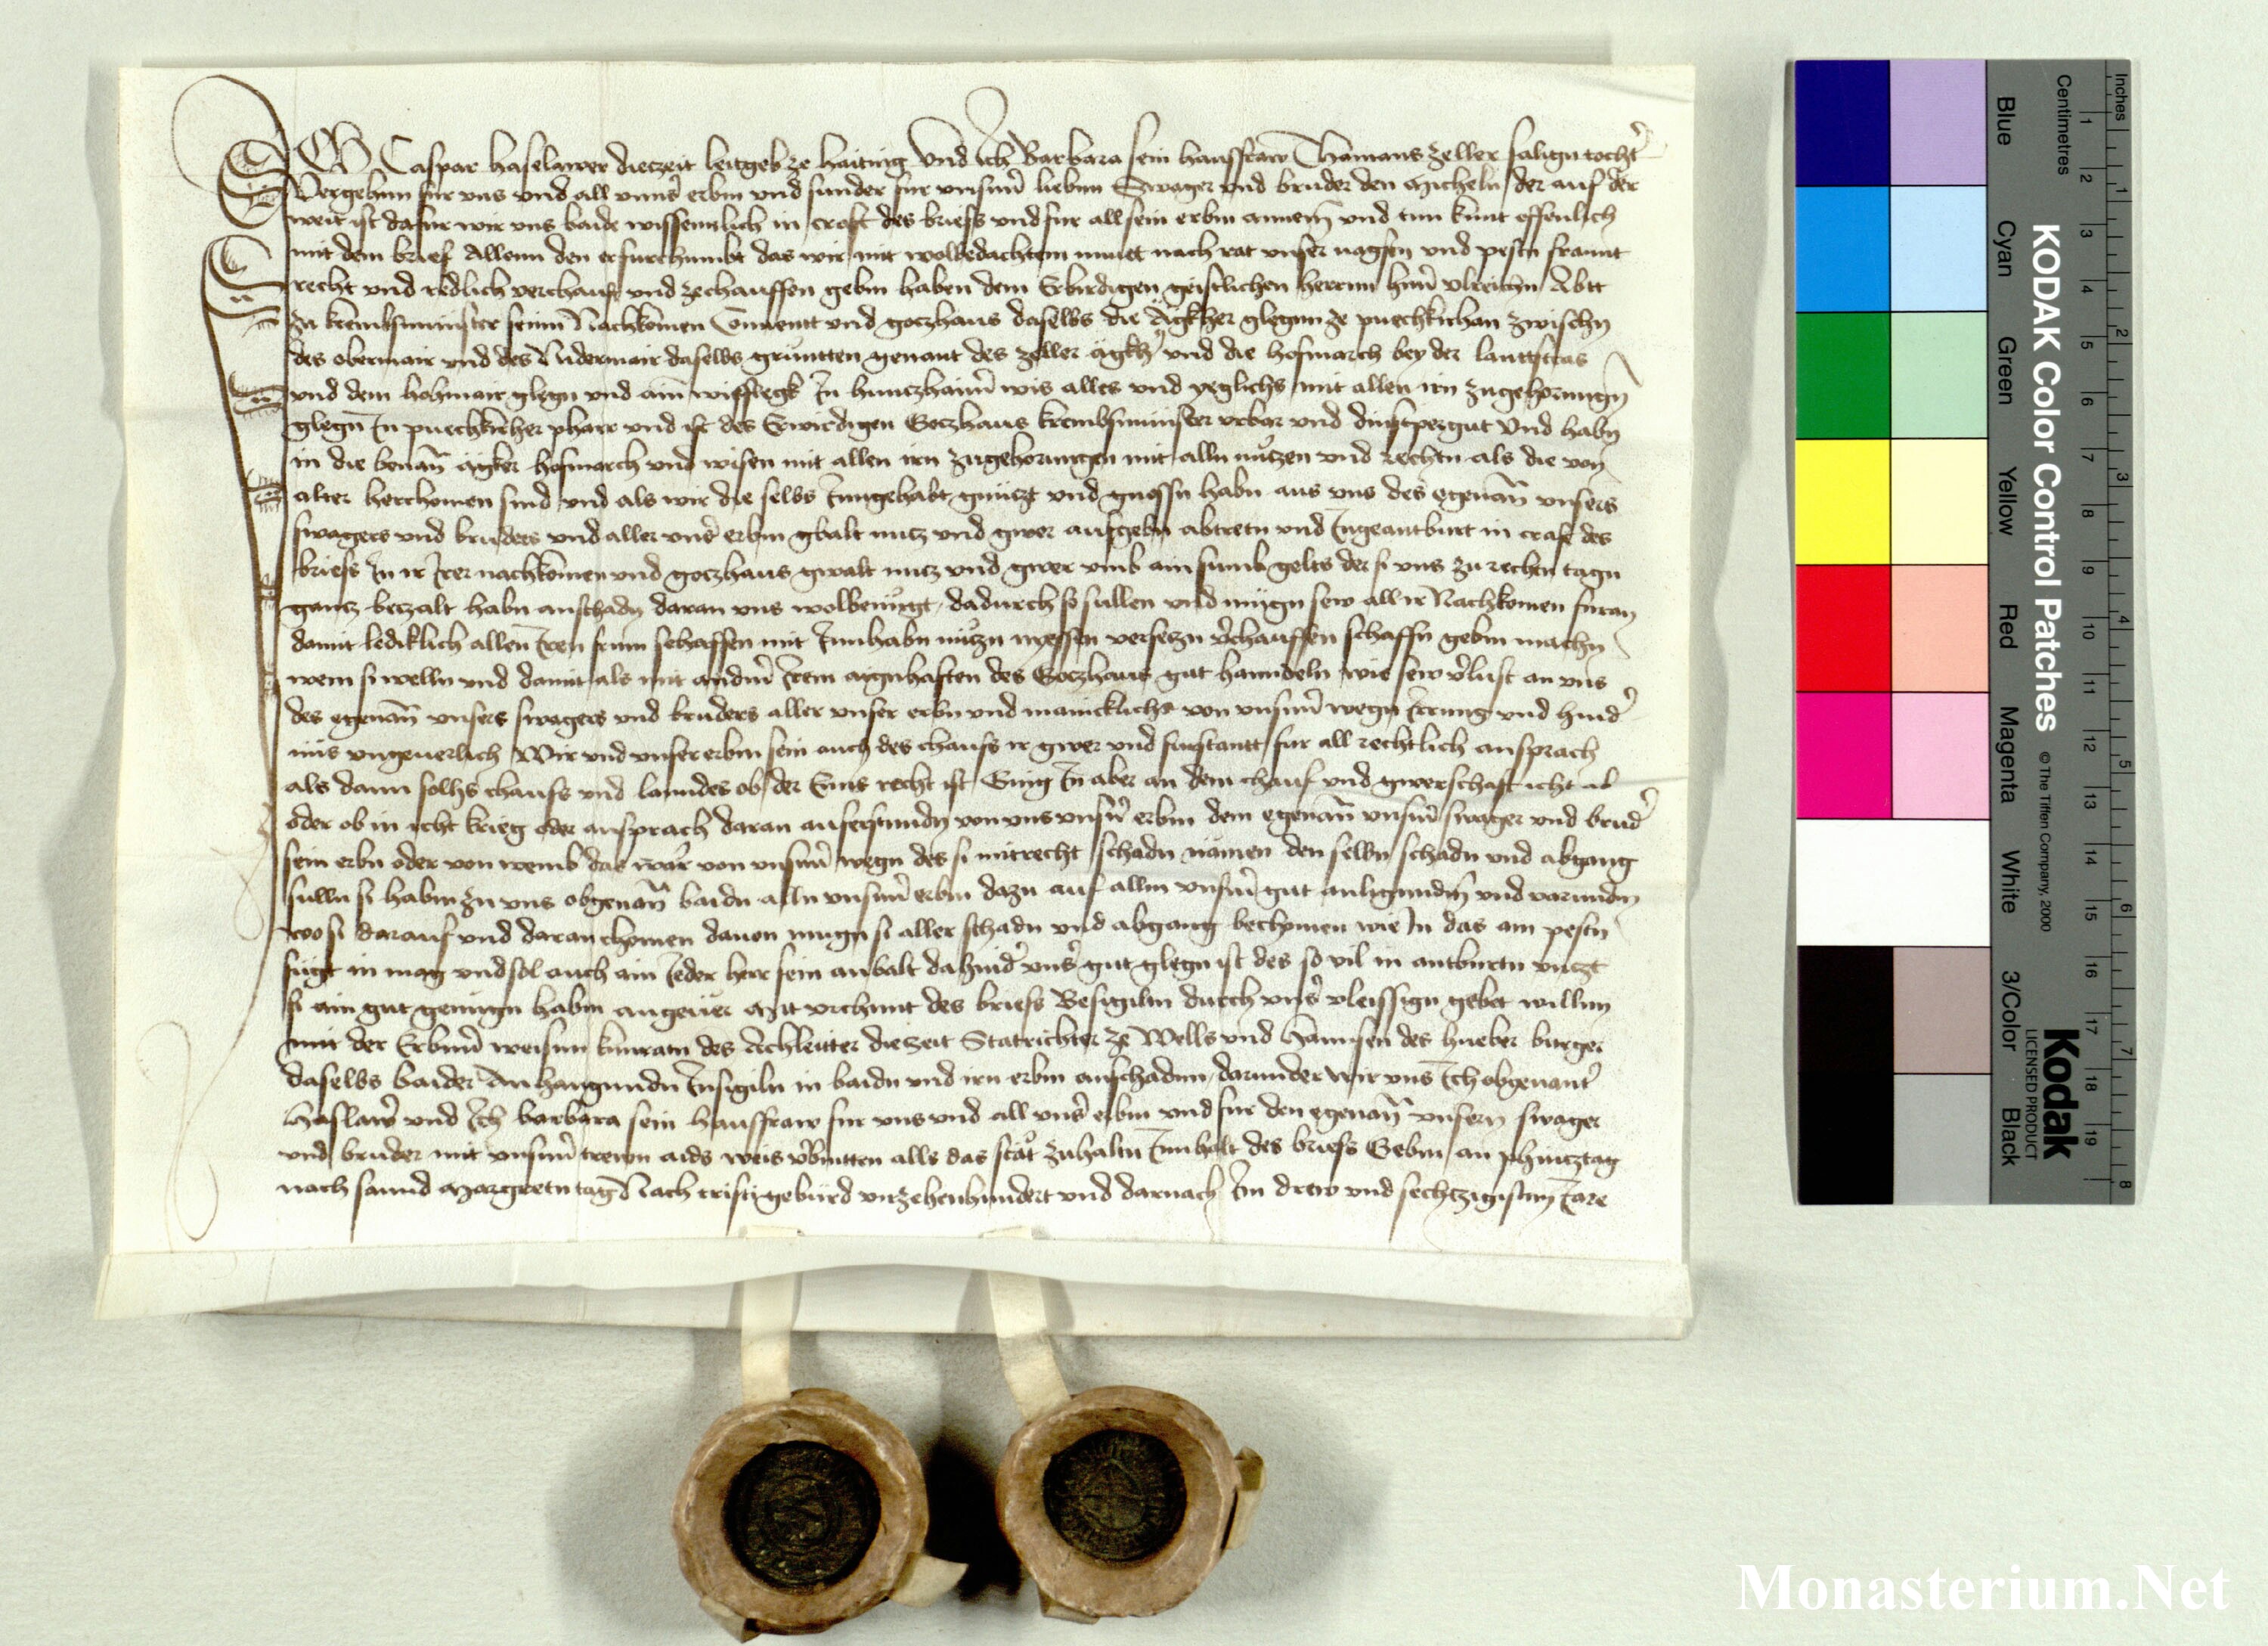 Ich Caspar haselawer diezeit leitgeb ze haiting Vnd ich Barbara sein hausfraw Thamans zeller salign tochter̉
Vergehnn fur vns vnd all vnnser̉ erbm vnd sunder fur vnsnm̉ liebnn Swager vnd bruder den Micheln der auf der
weit ist dafur wir vns baide wissennlich in craft des briefs vnd fur all sein erbm annem̄ vnd tun kunt offenlich
mit dem brief Allenn den er furchumbt das wir mit wolbedachtem muet nach rat vnser nagstn vnd pestn frannt
recht vnd redlich verchauft vnd ze chauffen gebm haben dem Erbirdigen geistlichen herrnn hern̉ vlreichn Abtt
zu krembsmunster seinn Nachkomen Conuentt vnd goczhaus daselbs die Ägkher glegnn ze puechkirhan zwischn
des obermair vnd des Nidermair daselbs gruntten genant des zeller ägkh̉ vnd die hofmarch bey der lanttstras
vnd dem hohmair glegn vnd ain̄ wissflegk In huntzhaim̉ wis alles vnd yeglichs mit allen irn zugehorungn
glegn̄ In puechkirher pharr vnd ist des Erwirdigen Goczhaus krembsmunster vrbar vnd dinstpergut Vnd habn
in die benan̄ ägker hofmarch vnd wisen mit allen irn zugehorungen mit alln nuczen vnd rechtn als die von
alter herchomen sind vnd als wir die selbs Inngehabt gnuczt vnd gnossn habn aus vns des egenan̄ vnsers
swagers vnd bruders vnd aller vnser̉ erbm gbalt nutz vnd gwer aufgebn abtretn vnd Ingeantburt in craft des
briefs In ir Irer nachkomen vnd goczhaus gwalt nucz vnd gwer vmb ain sumb gelts der si vns zu rechtn tagn
gantz beczalt habn anschadn daran vns wolbenugt dadurch so sullen vnd mugn sew all ir Nachkomen furan
damit lediklich allen̄ Iren frum schaffen mit Innhabn nuczn niessen versetzn ver̉chauffen schaffn gebm machn
wem si welln vnd damit als mit anderm̉ Irem aignhaften des Goczhaus gut hanndeln wie sew ver̉lust an vns
des egenan̄ vnsers swagers vnd bruders aller vnser erbn vnd manicklichs von vnsnm̉ wegn Irrung vnd hind̉
nus vngeuerlich Wir vnd vnser erbm sein auch des chaufs ir gwer vnd furstantt fur all rechtlich ansprach
als dann solhs chaufs vnd lanndes ob der Enns recht ist Gieng In aber an dem chauf vnd gwerschaft icht ab
oder ob in icht krieg oder ansprach daran auferstundn von vns vnsrn̉ erbm dem egenan̄ vnsnm̉ swager vnd brud̉
sein erbn oder von wemb das wär von vnsnm̉ wegn des si mitrecht schadn nämen den selbn schadn vnd abgang
sulln si habm zu vns obgenan̄ baidn alln vnsnm̉ erbm dazu auf allm vnsnm̉ gut anligundm̄ vnd varundm
wo si darauf vnd daran chomen dauon mugn si aller schadn vnd abgang bechomen wie In das am pestn
fugt in mag vnd sol auch ain Ieder herr sein anbalt dahind̉ vnser̉ gut glegn ist des so vil in antburtn vnczt
si ain gut genugn habm angeuer Mit vrchunt des briefs Besigiln durch vnser̉ vleissign gebet willnn
mit der Erbnn̉ weisnn kunratn des Achleitter diezeit Statrichter ze Wells vnd Hannsen des hueber burger
daselbs baider Anhangundn Insigiln in baidn vnd irn erbm anschadnn darunder wir vns Ich obgenantt̉
Haslaw̉ vnd Ich barbara sein hausfraw fur vns vnd all vnser̉ erbm vnd fur den egenan̄ vnsern swager
vnd bruder mit vnsnm̉ trewn aids weis ver̉bintten alls das stät zuhaltn Innhalt des briefs Gebm an phincztag
nach sannd Margretn tag Nach cristi geburd virzehenhundert vnd darnach Im drew vnd sechtzigistnn Iare
KODAK Color Control Patches © The Tiffen Company, 2000
Kodak
LICENSED PRODUCT
Inches
Centimetres
1 2 3 4 5 6 7 8 9 10 11 12 13 14 15 16 17 18 19
1 2 3 4 5 6 7 8
Blue Cyan Green Yellow Red Magenta White 3/Color Black
Monasterium.Net